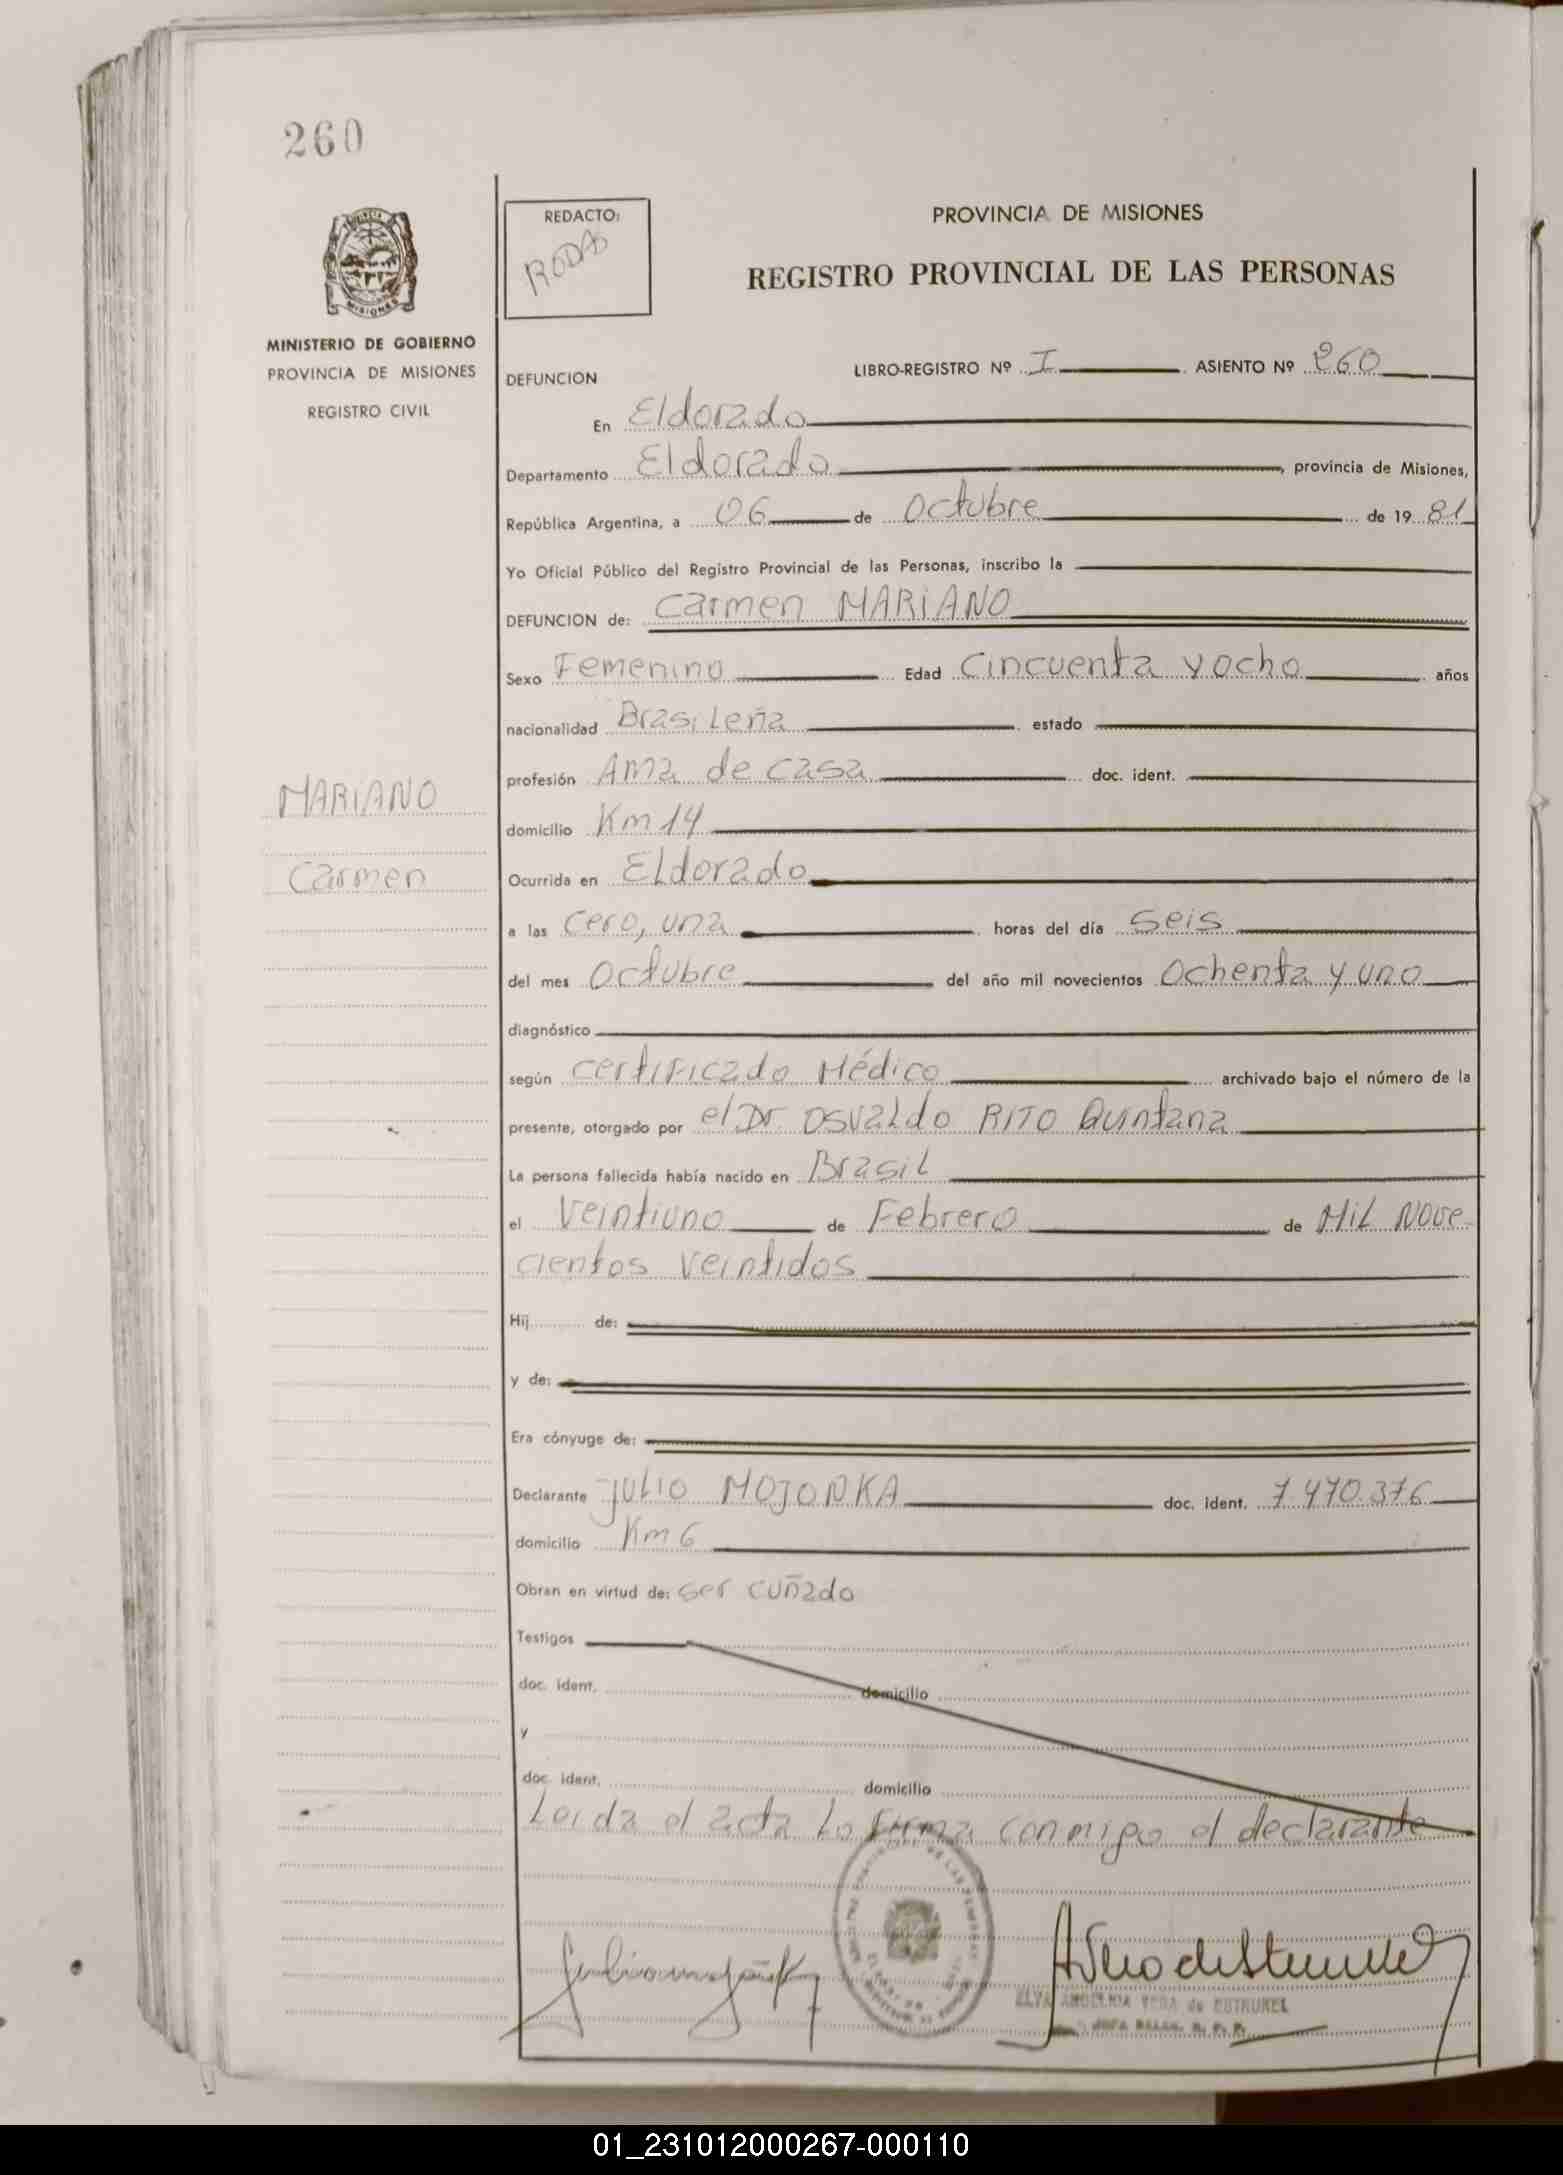 260
REDACTO:
RODAS
PROVINCIA DE MISIONES
REGISTRO PROVINCIAL DE LAS PERSONAS
MISIONES
MINISTERIO DE GOBIERNO
PROVINCIA DE MISIONES
REGISTRO CIVIL
DEFUNCION LIBRO-REGISTRO Nº I ASIENTO Nº 260
En Eldorado
Departamento Eldorado, provincia de Misiones,
República Argentina, a 06 de Octubre de 19 81
Yo Oficial Público del Registro Provincial de las Personas, inscribo la
DEFUNCION de: Carmen MARIANO
Sexo Femenino Edad Cincuenta y ocho años
nacionalidad Brasileña estado
profesión Ama de casa doc. ident.
MARIANO
domicilio Km 14
Carmen
Ocurrida en Eldorado
a las Cero, una horas del día Seis
del mes Octubre del año mil novecientos Ochenta y uno
diagnóstico
según Certificado Médico archivado bajo el número de la
presente, otorgado por el Dr. Osvaldo RITO Quintana
La persona fallecida había nacido en Brasil
el Veintiuno de Febrero de Mil Nove-
cientos Veintidos
Hij de:
y de:
Era cónyuge de:
Declarante Julio MOJONKA doc. ident. 7.470.376
domicilio Km 6
Obran en virtud de: ser cuñado
Testigos
doc. ident. domicilio
y
doc. ident. domicilio
Leida el acta Lo firma conmigo el declarante
ELVA ANGELICA VERA de
01_231012000267-000110